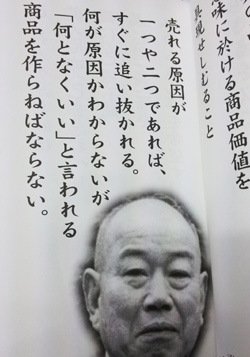 味に於ける商品価値を
具現せしむること
売れる原因が
一つや二つであれば、
すぐに追い抜かれる。
何が原因かわからないが
「何となくいい」と言われる
商品を作らねばならない。